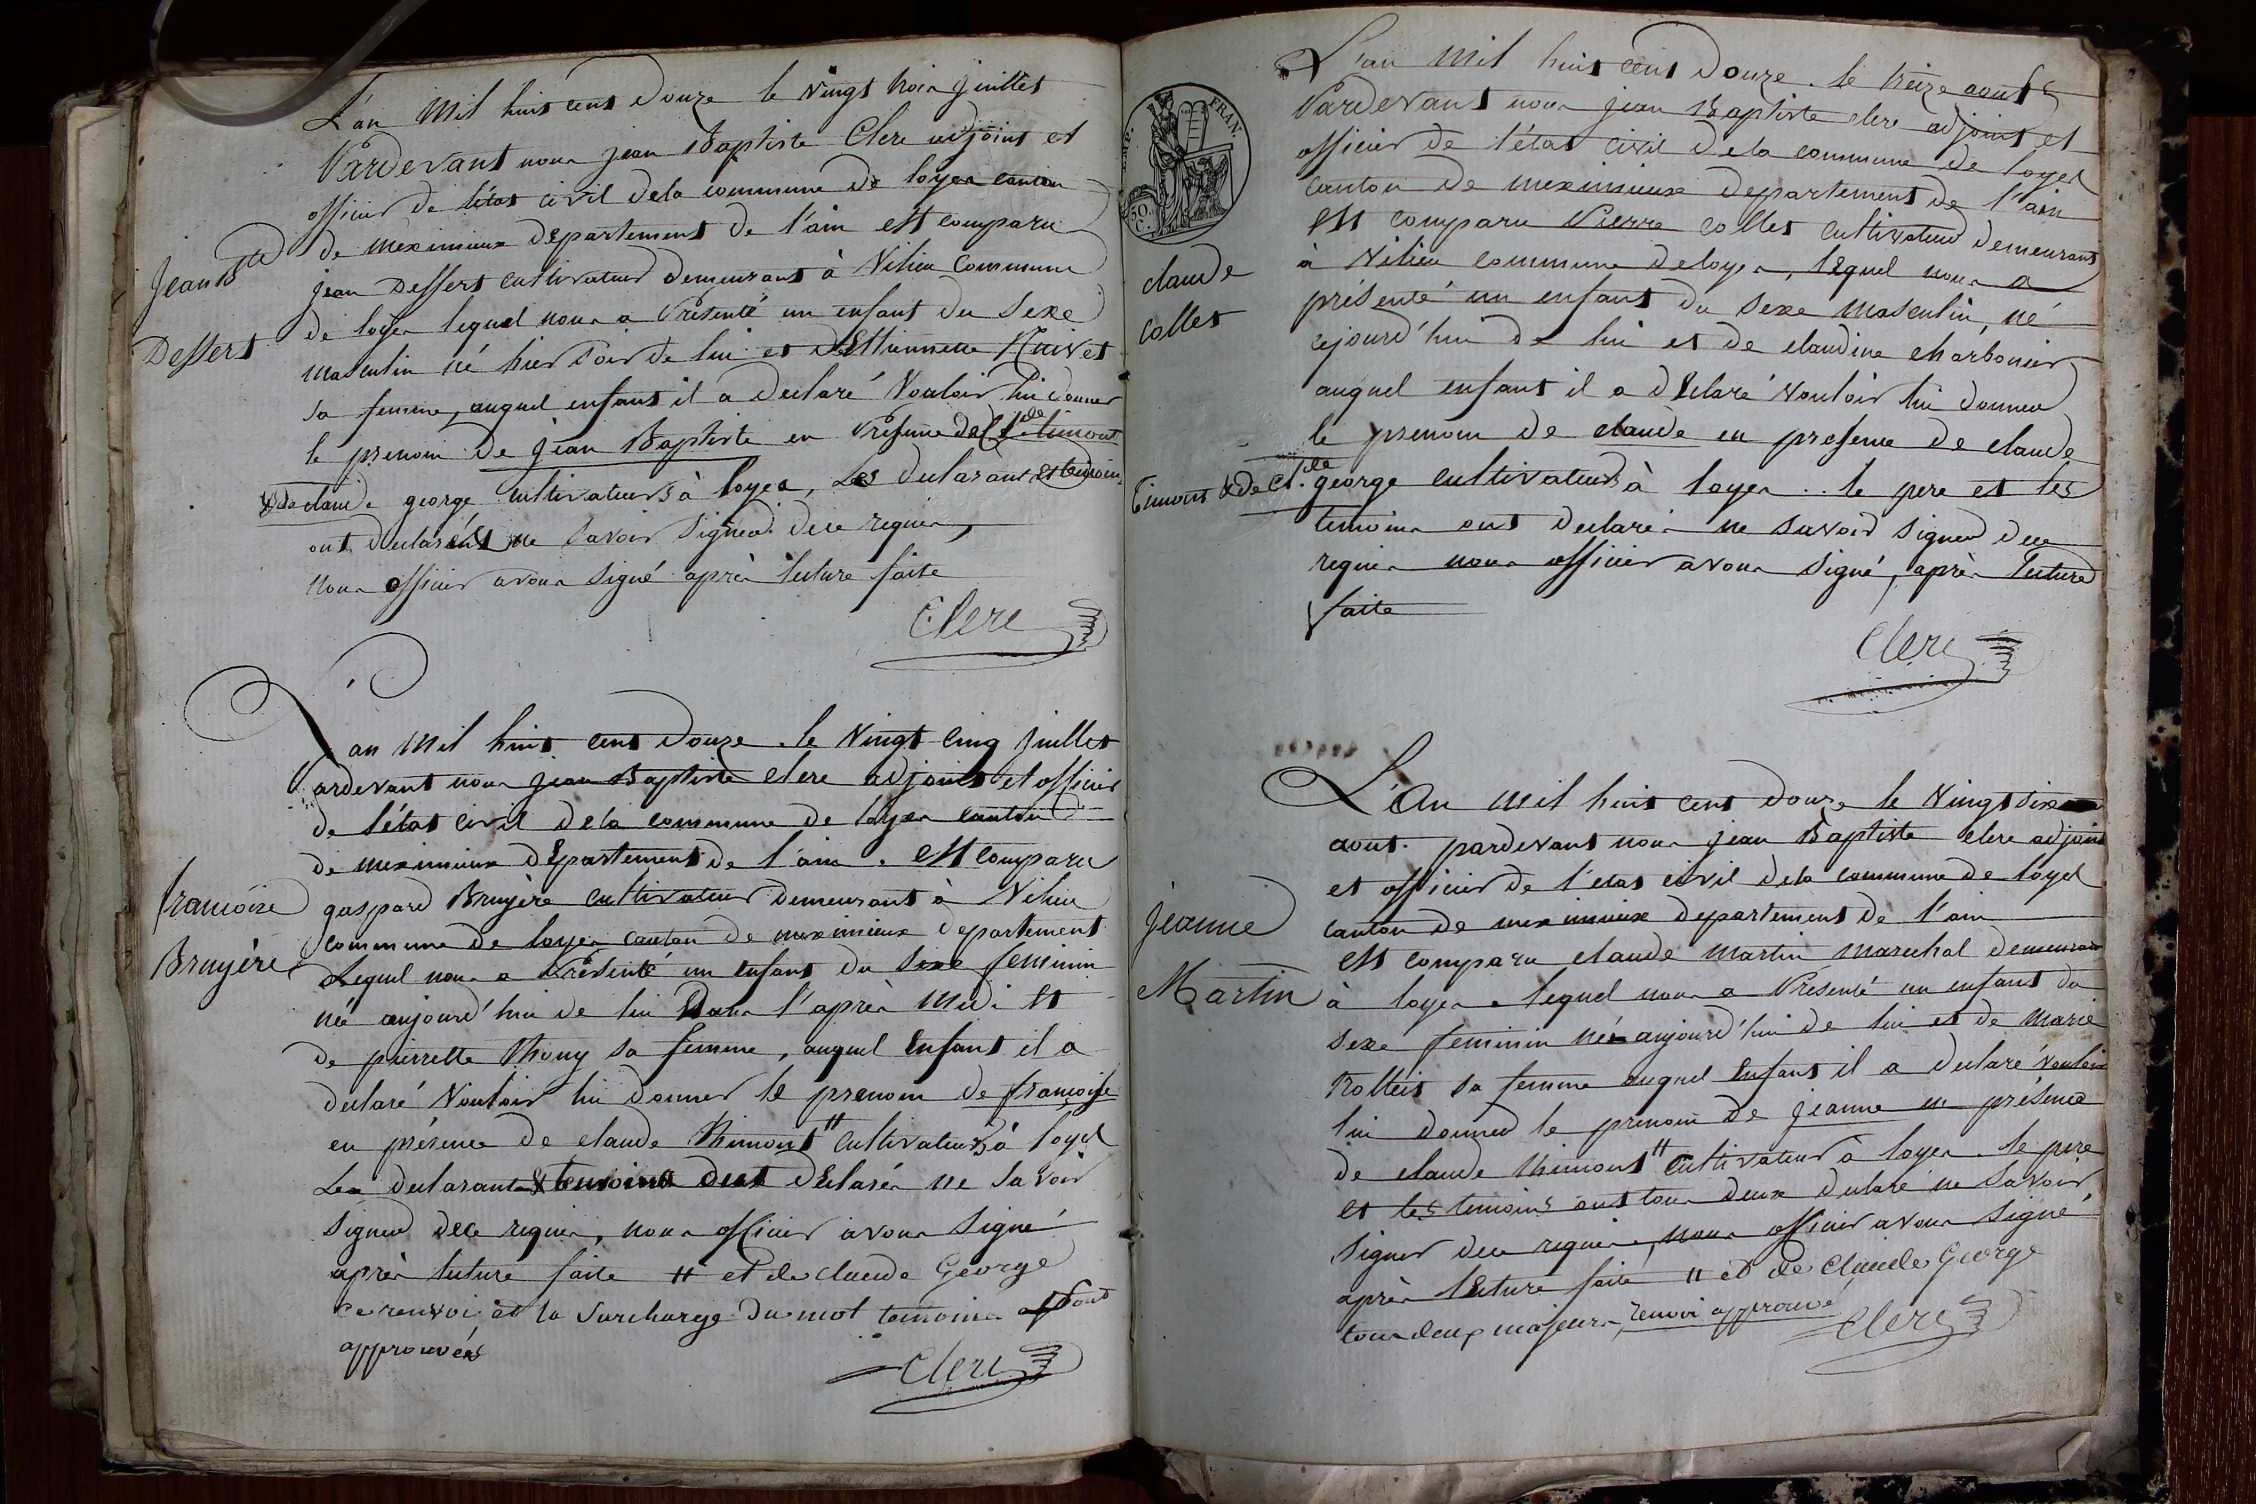 L'an Mil huit cent Douze le Vingt trois Juillet
Pardevant nous jean Baptiste Clerc adjoint et
officier de l'état civil dela commune de loyes canton
de meximieux département de l'ain est comparu
Jean Bte
Dessert
jean Dessert cultivateur demeurant à Vilieu Commune
de loyes lequel nous a Présenté un enfant du Sexe
masculin né hier soir de lui et d'Ettiennette
sa femme, auquel enfant il a declaré Vouloir lui donner
le prenom de jean Baptiste en Présence de Cl.de timont
& de claude george cultivateurs à loyes, Les declarant et temoins
ont declarés ne savoir signer dece requis,
nous officier avons signé après lecture faite
Clerc
L'an Mil huit cent Douze le Vingt cinq Juillet
Pardevant nous jean Baptiste Clerc adjoint et officier
de l'état civil dela commune de loyes canton
de meximieux département de l'ain. est comparu
francoise
Bruyère
gaspard Bruyère cultivateur demeurant à Vilieu
commune de loyes canton de meximieux département
Lequel nous a Présenté un enfant du sexe feminin
née aujourd'hui de lui Dans l'après Midi et
de pierrette Thony sa femme, auquel enfant il a
declaré Vouloir lui donner le prenom de françoise
en présence de claude Thimont # cultivateurs à loyes
Les declarant & temoins ont déclarés ne savoir
signer dece requis, nous officier avons signé
après lecture faite # et de claude George
ce renvoi et la surcharge du mot temoins sont
approuvés
Clerc
EMP. FRAN.
50.
C.
L'an Mil huit cent Douze le treize aout
Pardevant nous jean Baptiste clerc adjoint et
officier de l'état civil dela commune de loyes
canton de meximieux département de l'ain
est comparu Pierre collet cultivateur demeurant
claude
collet
à Vilieu commune de loyes, lequel nous a
présenté un enfant du sexe masculin, né
cejourd'hui de lui et de claudine charbonier
auquel enfant il a déclaré vouloir lui donner
le prenom de claude en presence de claude
Timont & de Cl.de george cultivateurs à loyes.. le pere et les
temoins ont declarés ne savoir signer dece
requis nous officier avons signé, après lecture
faite
Clerc
L'An mil huit cent douze le Vingt six
aout. pardevant nous jean Baptiste clerc adjoint
et officier de l'etat civil dela commune de loyes
canton de meximieux departement de l'ain
Jeanne
Martin
est comparu claude martin marechal demeurant
à loyes. lequel nous a Présenté un enfant du
sexe feminin née aujourd'hui de lui et de Marie
Trolleit sa femme auquel enfant il a declaré vouloir
lui donner le prenom de jeanne en présence
de claude thimont # cultivateur à loyes. le pere
et les temoins ont tous deux declaré ne savoir
signer dece requis, nous officier avons signé
après lecture faite # et de claude George
tous deux majeurs, renvoi approuvé
Clerc